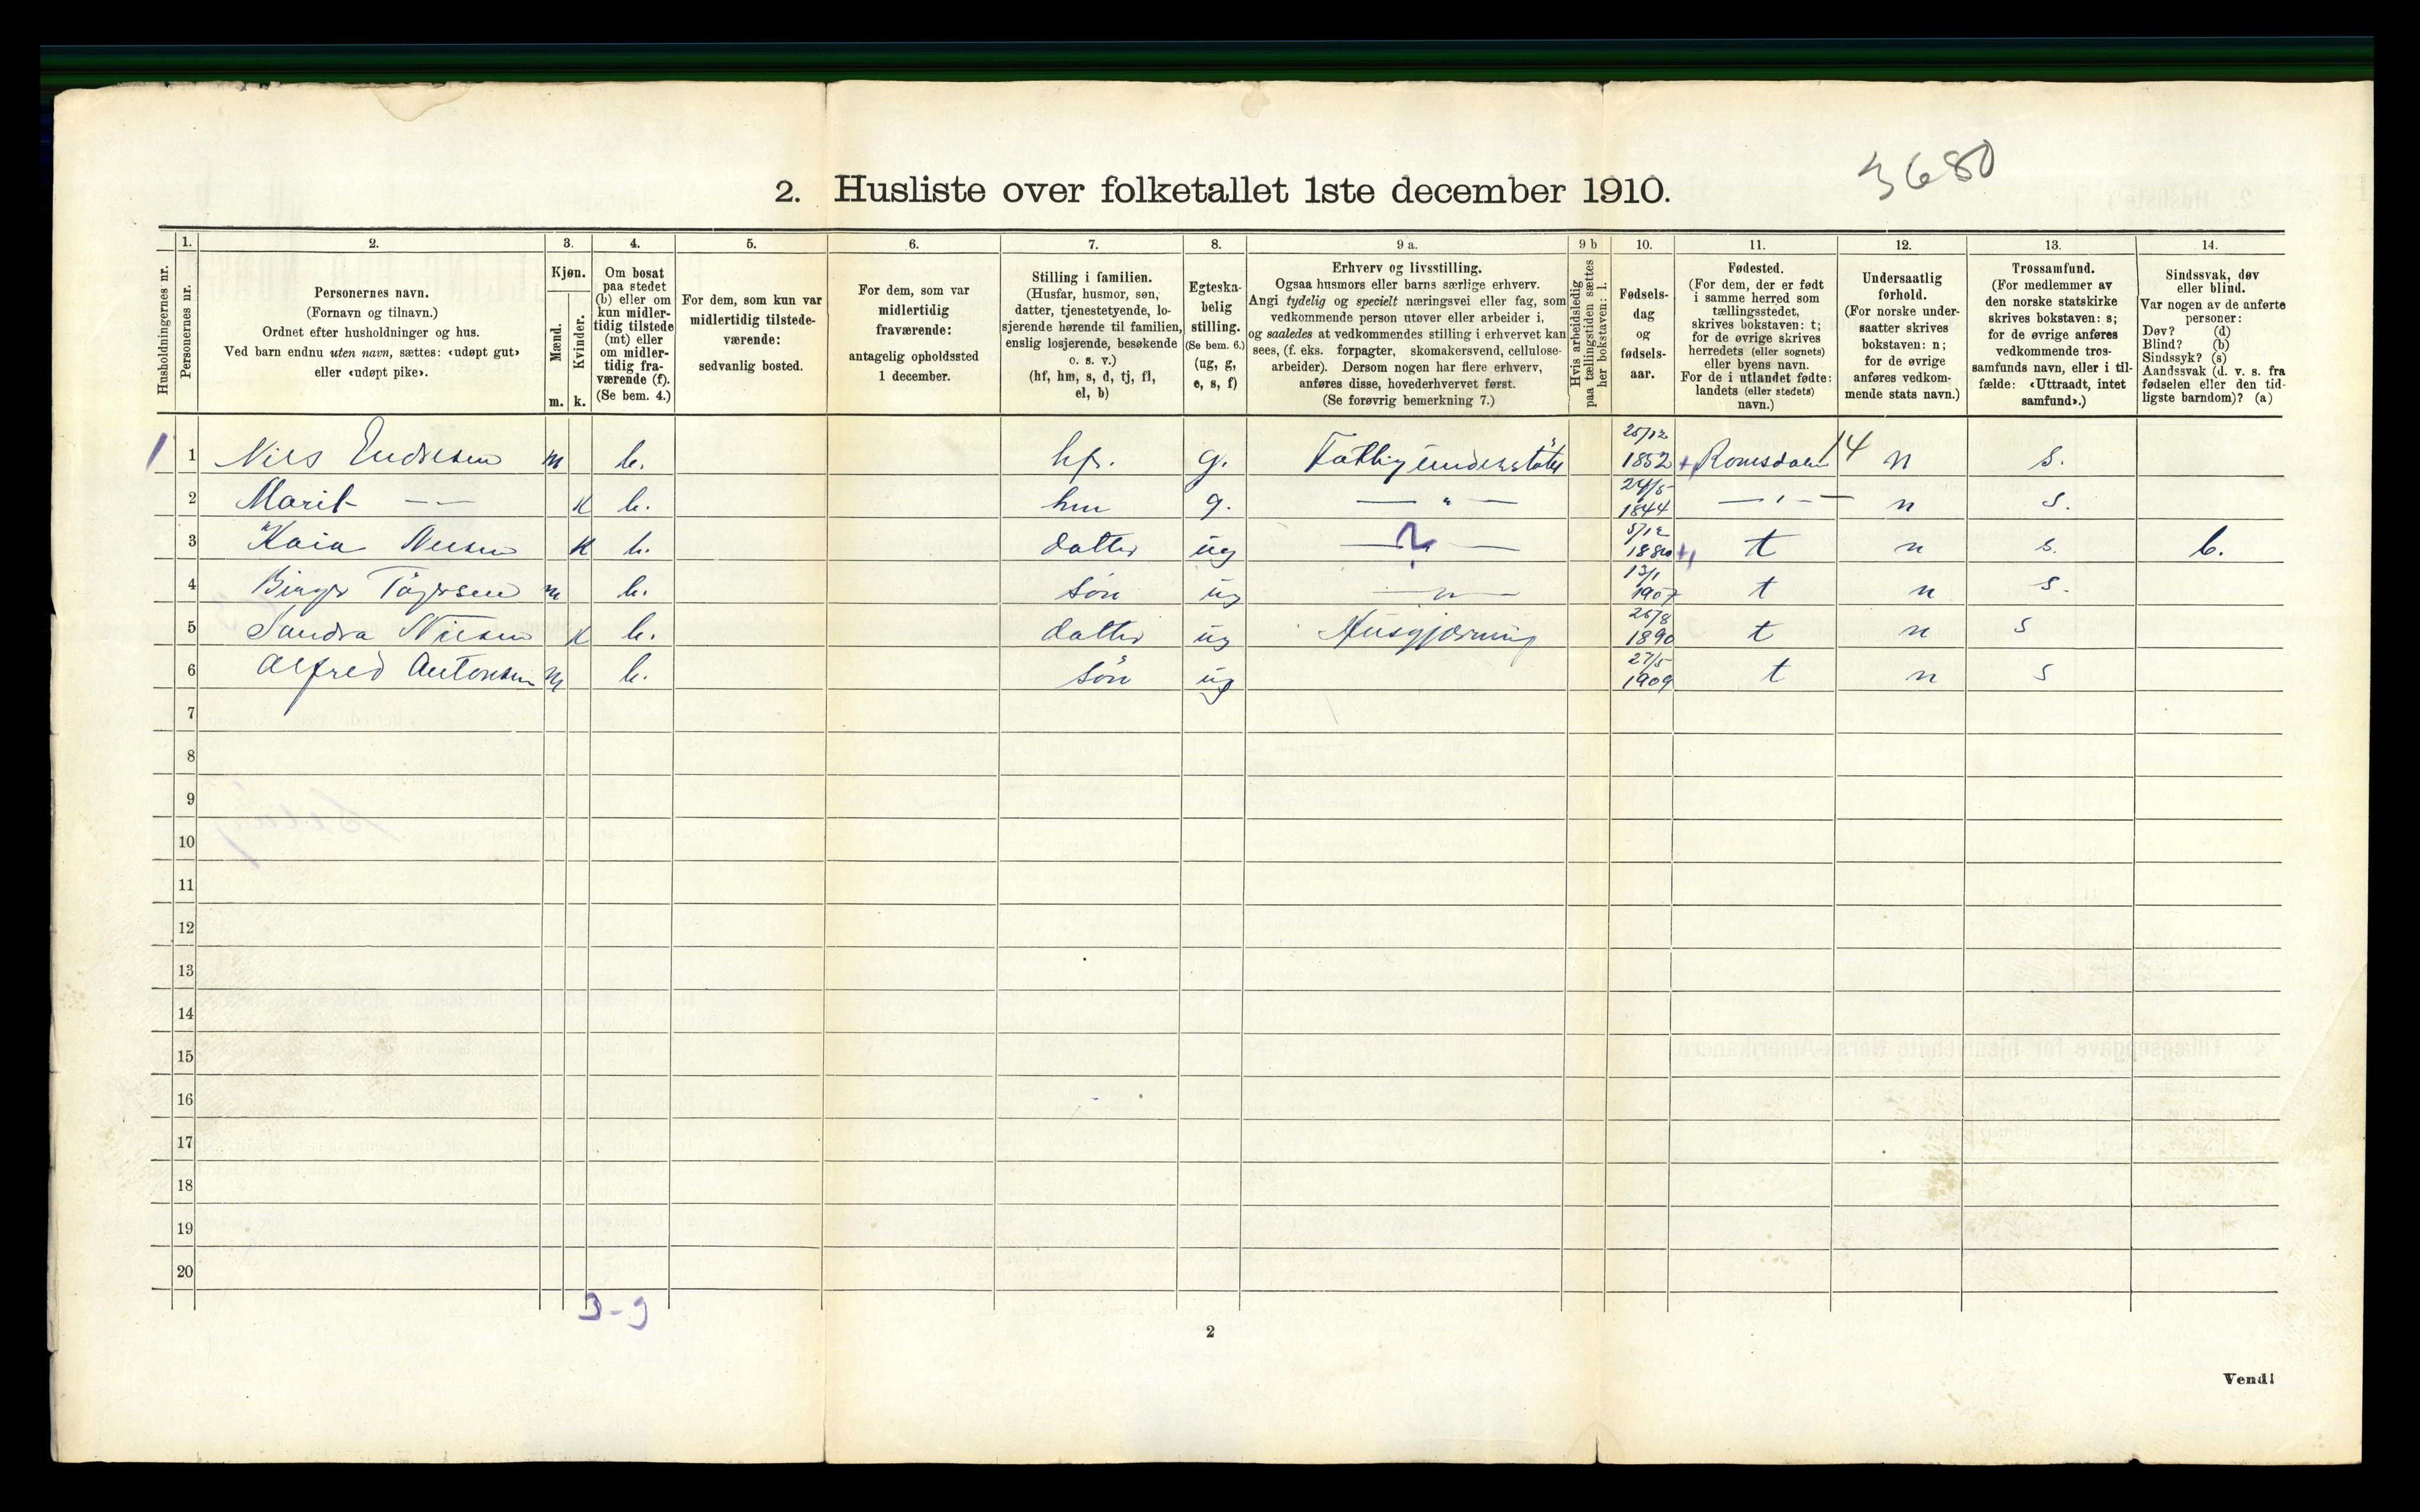 3680
2. Husliste over folketallet 1ste december 1910.
Husholdningernes nr.
1.
Personernes nr.
2.
Personernes navn.
(Fornavn og tilnavn.)
Ordnet efter husholdninger og hus.
Ved barn endnu uten navn, sættes: «udøpt gut»
eller «udøpt pike».
3.
Kjøn.
Mænd.
Kvinder.
m. k.
4.
Om bosat
paa stedet
(b) eller om
kun midler-
tidig tilstede
(mt) eller
om midler-
tidig fra-
værende (f).
(Se bem. 4.)
5.
For dem, som kun var
midlertidig tilstede-
værende:
sedvanlig bosted.
6.
For dem, som var
midlertidig
fraværende:
antagelig opholdssted
1 december.
7.
Stilling i familien.
(Husfar, husmor, søn,
datter, tjenestetyende, lo-
sjerende hørende til familien,
enslig losjerende, besøkende
o. s. v.)
(hf, hm, s, d, tj, fl,
el, b)
8.
Egteska-
belig
stilling.
(Se bem. 6.)
(ug, g,
e, s, f)
9 a.
Erhverv og livsstilling.
Ogsaa husmors eller barns særlige erhverv.
Angi tydelig og specielt næringsvei eller fag, som
vedkommende person utøver eller arbeider i,
og saaledes at vedkommendes stilling i erhvervet kan
sees, (f. eks. forpagter, skomakersvend, cellulose-
arbeider). Dersom nogen har flere erhverv,
anføres disse, hovederhvervet først.
(Se forøvrig bemerkning 7.)
9 b
Hvis arbeidsledig
paa tællingstiden sættes
her bokstaven: l.
10.
Fødsels-
dag
og
fødsels-
aar.
11.
Fødested.
(For dem, der er født
i samme herred som
tællingsstedet,
skrives bokstaven: t;
for de øvrige skrives
herredets (eller sognets)
eller byens navn.
For de i utlandet fødte:
landets (eller stedets)
navn.)
12.
Undersaatlig
forhold.
(For norske under-
saatter skrives
bokstaven: n;
for de øvrige
anføres vedkom-
mende stats navn.)
13.
Trossamfund.
(For medlemmer av
den norske statskirke
skrives bokstaven: s;
for de øvrige anføres
vedkommende tros-
samfunds navn, eller i til-
fælde: «Uttraadt, intet
samfund».)
14.
Sindssvak, døv
eller blind.
Var nogen av de anførte
personer:
Døv? (d)
Blind? (b)
Sindssyk? (s)
Aandssvak (d. v. s. fra
fødselen eller den tid-
ligste barndom)? (a)
1 1 Nils Endresen m b. hf. g. Fattigunderstøtt 25/12 1852 + Romsdalen 14 n s.
2 Marit — — k b. hm g. — " — 24/5 1844 — " — n s.
3 Kaia Nilsen k b. datter ug — " — ? 5/12 1880 + t n s. b.
4 Birger m b. søn ug — " — 13/1 1907 t n s.
5 Sandra Nilsen k b. datter ug Husgjerning 26/8 1890 t n s
6 Alfred Antonsen m b. søn ug 27/5 1909 t n s
7
8
9
10
11
12
13
14
15
16
17
18
19
20
3-3
2
Vend!